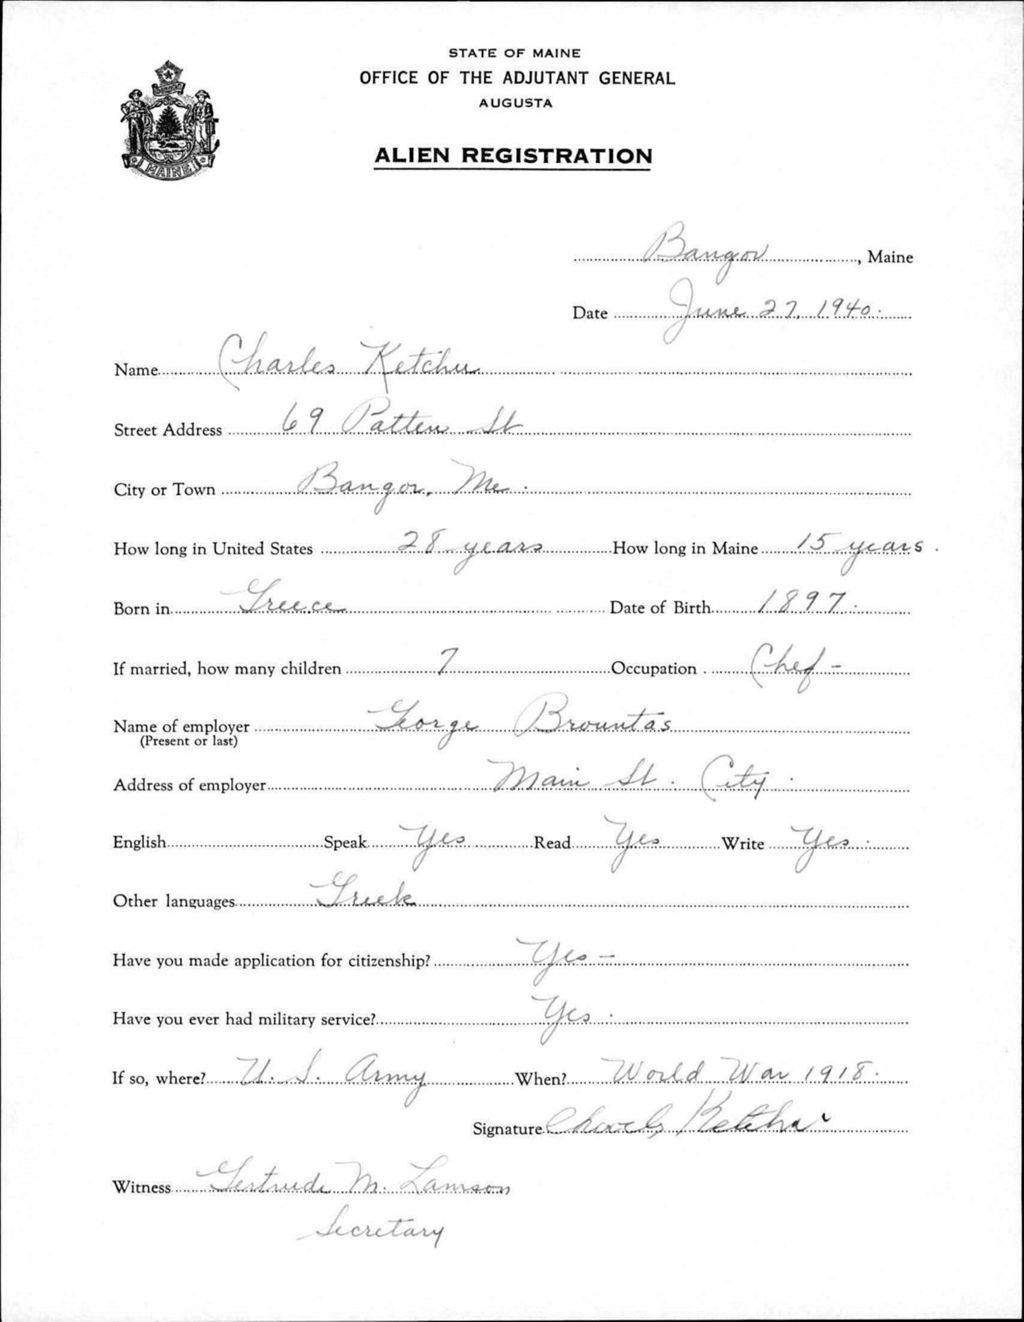 STATE OF MAINE
OFFICE OF THE ADJUTANT GENERAL
AUGUSTA
ALIEN REGISTRATION
MAINE
Bangor, Maine
Date June 27, 1940.
Name Charles Ketchu
Street Address 69 Patten St
City or Town Bangor, Me.
How long in United States 28 years How long in Maine 15 years.
Born in Greece Date of Birth 1897.
If married, how many children 7 Occupation Chef -
Name of employer George Brountas
(Present or last)
Address of employer Main St. City.
English Speak Yes Read Yes Write Yes.
Other languages Greek
Have you made application for citizenship? Yes -
Have you ever had military service? Yes.
If so, where? U. S. Army When? World War 1918.
Signature Charles
Witness Gertrude M. Lamson
Secretary